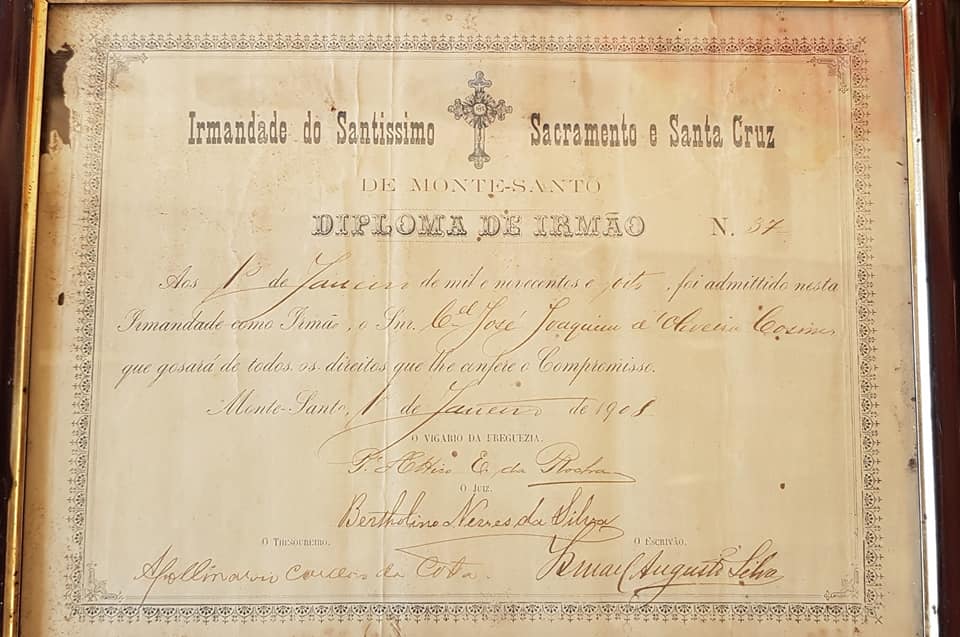 Irmandade do Santissimo Sacramento e Santa Cruz
DE MONTE-SANTO
DIPLOMA DE IRMÃO N. 37
Aos 1º de Janeiro de mil e novecentos e oito, foi admittido nesta
Irmandade como Irmão, o Snr. Cel José Joaquim d'Oliveira Cosimo
que gosará de todos os direitos que lhe confere o Compromisso.
Monte-Santo, 1º de Janeiro de 1908
O VIGARIO DA FREGUEZIA.
Pe E. da Rocha
O JUIZ.
Bertholino Neves da Silva
O THESOUREIRO. O ESCRIVÃO.
Apollinario Carlos da Costa. Ismael Augusto Silva